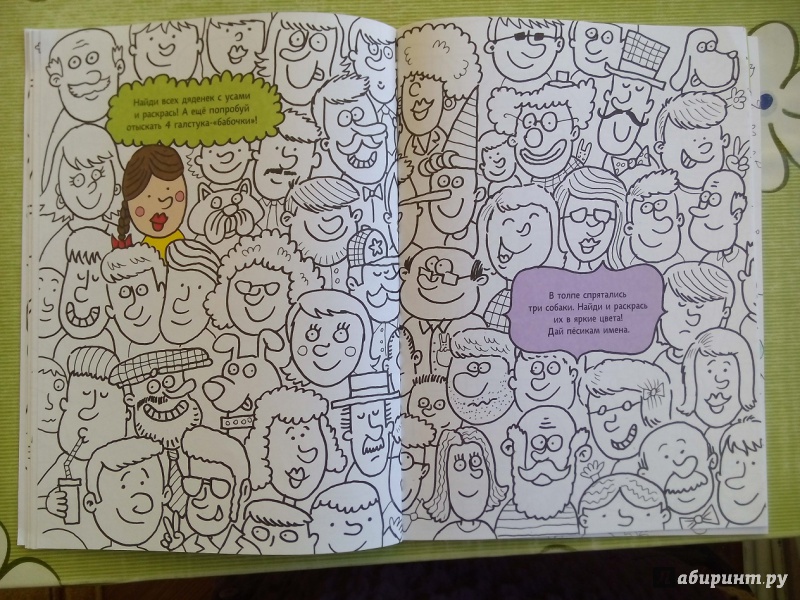 Найди всех дяденек с усами
и раскрась! А ещё попробуй
отыскать 4 галстука-«бабочки»!
В толпе спрятались
три собаки. Найди и раскрась
их в яркие цвета!
Дай пёсикам имена.
Лабиринт.ру